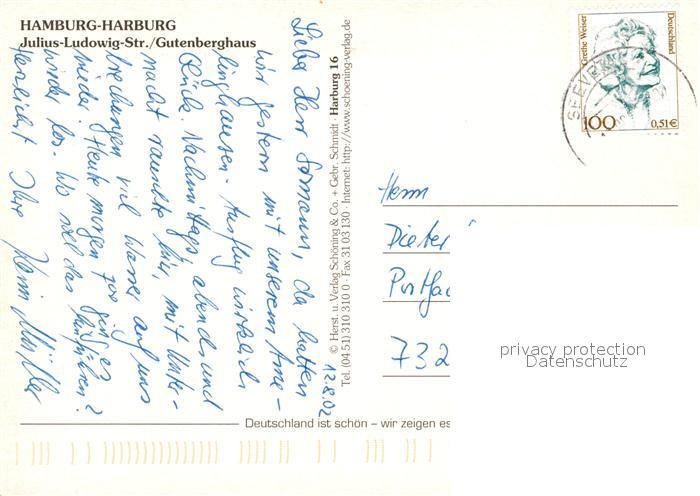 HAMBURG-HARBURG
Julius-Ludwig-Str./Gutenberghaus
12.8.02
Liebe Herr Sormann, da hatten
wir gestern mit unserem Ame-
linghausen-Ausflug wirklich
Glück. Nachmittags, abends und
nacht rauschte hier mit Unter-
brechungen viel Wasser auf uns
nieder. Heute morgen ging es
wieder los. Wo soll das hinführen?
Herzlichst Ihre Müller
© Herst. u. Verlag Schöning & Co. + Gebr. Schmidt · Harburg 16
Tel. (04 51) 310 310 0 · Fax 31 03 130 · Internet: http://www.schoening-verlag.de
Grethe Weiser
Deutschland
100
0,51€
SEEVETAL
Herrn
Dieter
Postfac
732
privacy protection
Datenschutz
Deutschland ist schön – wir zeigen es